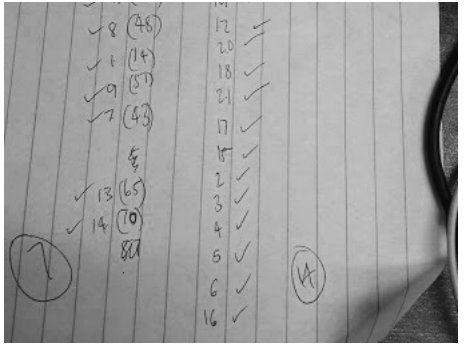 ✓ 8 (48)
✓ 1 (14)
✓ 9 (51)
✓ 7 (43)
✓ 13 (65)
✓ 14 (70)
7
12 ✓
20 ✓
18 ✓
21 ✓
17 ✓
15 ✓
2 ✓
3 ✓
4 ✓
5 ✓
6 ✓
16 ✓
14